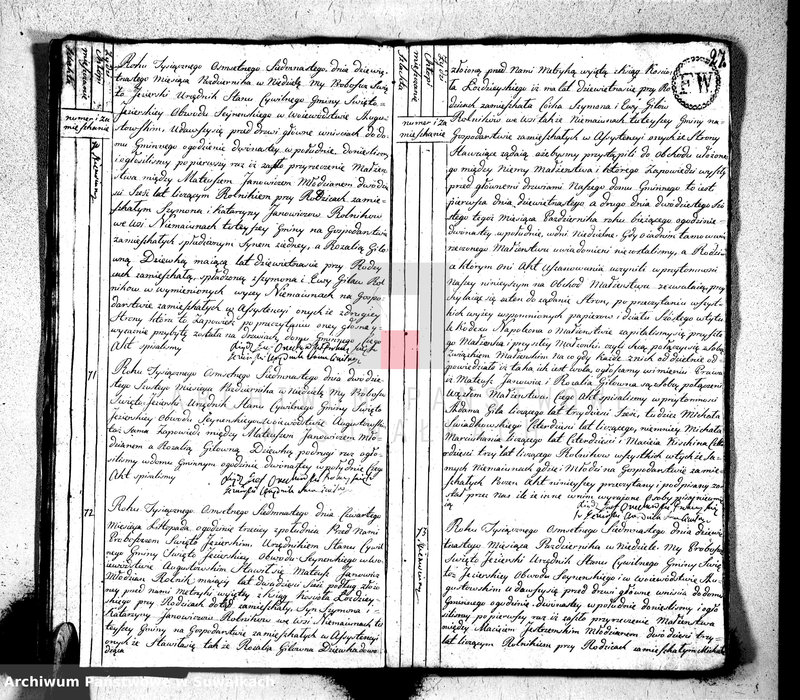 Roku Tysiącznego Osmsetnego Siedmnastego dnia dziewię-
tnastego Miesiąca Października w Niedzielę My Proboszcz Świę-
to Jezierski Urzędnik Stanu Cywilnego Gminy Święto-
Jezierskiey Obwodu Seynenskiego w Woiewództwie Augu-
stowskim, Udawszy się przed drzwi główne wniścia do do-
mu Gminnego o godzinie dwunastey w południe, donieśliśmy
i ogłosiliśmy po pierwszy raz iż zaszło przyrzeczenie Małżeń-
stwa między Mateuszem Janowiczem Młodzianem dwadzie-
ścia Sześć lat liczącym Rolnikiem przy Rodzicach zamie-
szkałym Szymona i Katarzyny Janowiczow Rolnikow
we wsi Niemaiunach tuteyszey Gminy na Gospodarstwie
zamieszkałych spłodzonym Synem, a Rozalią Gilo-
wną Dziewką maiącą lat dziewiętnaście przy Rodzi-
cach zamieszkałą, spłodzoną z Szymona i Ewy Gilow Rol-
nikow w wymienionych wyżey Niemaiunach na Gospo-
darstwie zamieszkałych w Assystencyi onych że z drugiey
Strony która to Zapowiedź po przeczytaniu oney głośno y
wyraźnie przybytą została na drzwiach domu Gminnego Czego
Akt spisaliśmy
71
Roku Tysiącznego Osmsetnego Siedmnastego dnia dwudzie-
stego Szóstego Miesiąca Października w Niedzielę My Proboszcz
Święto-Jezierski Urzędnik Stanu Cywilnego Gminy Święto
Jezierskiey Obwodu Seynenskiego w Woiewództwie Augustowskim
też Sama Zapowiedź między Mateuszem Janowiczem Mło-
dzianem a Rozalią Gilowną Dziewką podrugi raz ogło-
siliśmy w domu Gminnym o godzinie dwunastey w południe Czego
Akt spisaliśmy
72
Roku Tysiącznego Osmsetnego Siedmnastego dnia czwartego
Miesiąca Listopada, o godzinie trzeciey z południa Przed Nami
Proboszczem Święto Jezierskim Urzędnikiem Stanu Cywil-
nego Gminy Święto Jezierskiey Obwodu Seynenskiego w Wo-
iewództwie Augustowskim Stawił się Mateusz Janowicz
Młodzian Rolnik maiący lat dwadzieścia Sześć podług złożo-
ney przed nami Metryki wyiętey z Xiąg Kościoła Łozdziey-
skiego przy Rodzicach dotąd zamieszkały, Syn Szymona i
Katarzyny Janowiczow Rolnikow we wsi Niemaiunach tu-
teyszey Gminy na Gospodarstwie zamieszkałych w Assystencyi
onych że Stawiła się także Rozalia Gilowna Dziewka dowo-
dząca
27
FW
złożoną przed Nami Metryką wyiętą z Xiąg Kościo-
ła Łozdzieyskiego iż ma lat dziewiętnaście przy Ro-
dzicach zamieszkała Córka Szymona i Ewy Gilow
Rolnikow we wsi także Niemaiunach tuteyszey Gminy na
Gospodarstwie zamieszkałych w Assystencyi onych że Strony
Stawaiące żądaią ażebyśmy przystąpili do Obchodu ułożone-
go między Niemi Małżeństwa i którego Zapowiedzi wyszły
przed głównemi drzwiami Naszego domu Gminnego to iest:
pierwsza dnia dziewiętnastego a druga dnia dwudziestego Szó-
stego tegoż Miesiąca Października roku bieżącego o godzinie
dwunastey w południe, w dni Niedzielne. Gdy o żadnym tamowaniu
rzeczonego Małżeństwa uwiadomieni nie zostaliśmy, a Rodzice
Naszey ninieyszym na Obchod Małżeństwa zezwalaią, przy-
chylaiąc się zatem do żądania Stron, po przeczytaniu wszyst-
kich wyżey wspomnionych papierow i działu Szóstego w tytule
Kodexu Napoleona o Małżeństwie zapytaliśmy się przyszłe-
go Małżonka i przyszłey Małżonki czyli chcą połączyć się z sobą
związkiem Małżeńskim na co gdy każde z nich oddzielnie od-
powiedziało iż taka ich iest wola, ogłaszamy w imieniu Prawa
iż Mateusz Janowicz i Rozalia Gilowna są z sobą połączeni
węzłem Małżeństwa. Czego Akt spisaliśmy w przytomności
Adama Gila liczącego lat trzydzieści Sześć, tudzież Michała
Maciunkania liczącego lat Czterdzieści i Macieia
lat liczącego Rolnikow wszystkich w tychże Sa-
mych Niemaiunach gdzie i Młodzi na Gospodarstwie zamie-
szkałych Poczem Akt ninieyszy przeczytany i podpisany zo-
stał przez nas ile że inne w nim wyrażone Osoby pisać nieumie-
ią
Roku Tysiącznego Osmsetnego Siedmnastego dnia dziewię-
tnastego Miesiąca Października w Niedzielę My Proboszcz
Święto Jezierski Urzędnik Stanu Cywilnego Gminy Świę-
to Jezierskiey Obwodu Seynenskiego w Woiewództwie Au-
gustowskim udawszy się przed drzwi główne wniścia do domu
Gminnego o godzinie dwunastey w południe donieśliśmy i ogło-
siliśmy po pierwszy raz iż zaszło przyrzeczenie Małżeństwa
między Macieiem Jestrzemskim Młodzianem dwadzieścia trzy
lat liczącym Rolnikiem przy Rodzicach zamieszkałym Michała
Archiwum Państwowe w Suwałkach